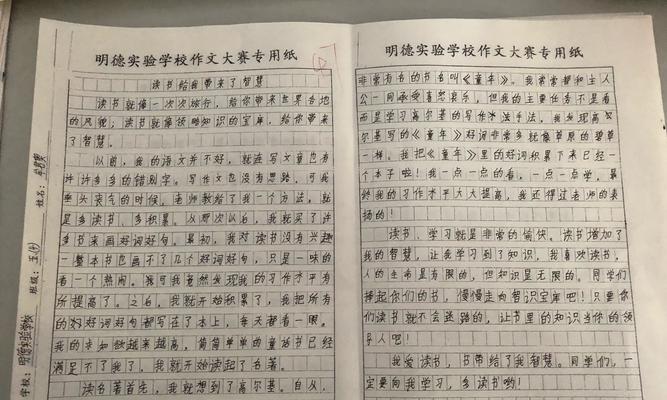 明德实验学校作文大赛专用纸
读书给我带来了智慧
读书就像一次次旅行,给你带来世界各地
的风貌;读书就像领略知识的宝库,给你带来
了智慧。
以前,我的语文并不好,就连写文章也有
许许多多的错别字。写作文也没有思路,可我
垂头丧气的时候,老师教给了我一个方法,就
是多读书、多积累。从那次以后,我就买了许
多书来画好词好句。最初,我对读书没有兴趣
一整本书也画不了几个好词好句,只是一味的
看一个热闹。我可我竟然发现我的习作水平有
所提高了。之后,我就开始积累了,我把所有
的好好词好句都写在了本上,每天都看一眼。
我的求知欲越来越高,简简单单的童话书已经
满足不了我了,我就开始读起了名著。
读名著首先,我就想到了高尔基。自从,
学校:明德实验学校
班级:五(4)
姓名:
明德实验学校作文大赛专用纸
非常有名的书名叫《童年》。我常常帮和主人
公一同承受喜怒哀乐,但我的主要任务不是看
而是学习高尔基的写作手法,我发现高
尔基写的《童年》好词非常多就像草原的碧草
一样。我把《童年》里的好词积累下来已经一
个本子啦!我一点一点的看,一点一点学,最
终我的习作水平大大提高,我还得过老师的表
扬的!
读书、学习就是非常的愉快。读书增加了
我的智慧,让我学习到了知识,我喜欢读书,
人的生命是有限的,但知识是无限的。同学们
捧起你们的书,慢慢走向智识宝库吧!只要你
们读书就不会迷路的,让书里的知识当你的领
导人吧!
我爱读书,书带给了我智慧。同学们,一
定要向我学习,多读书哟!